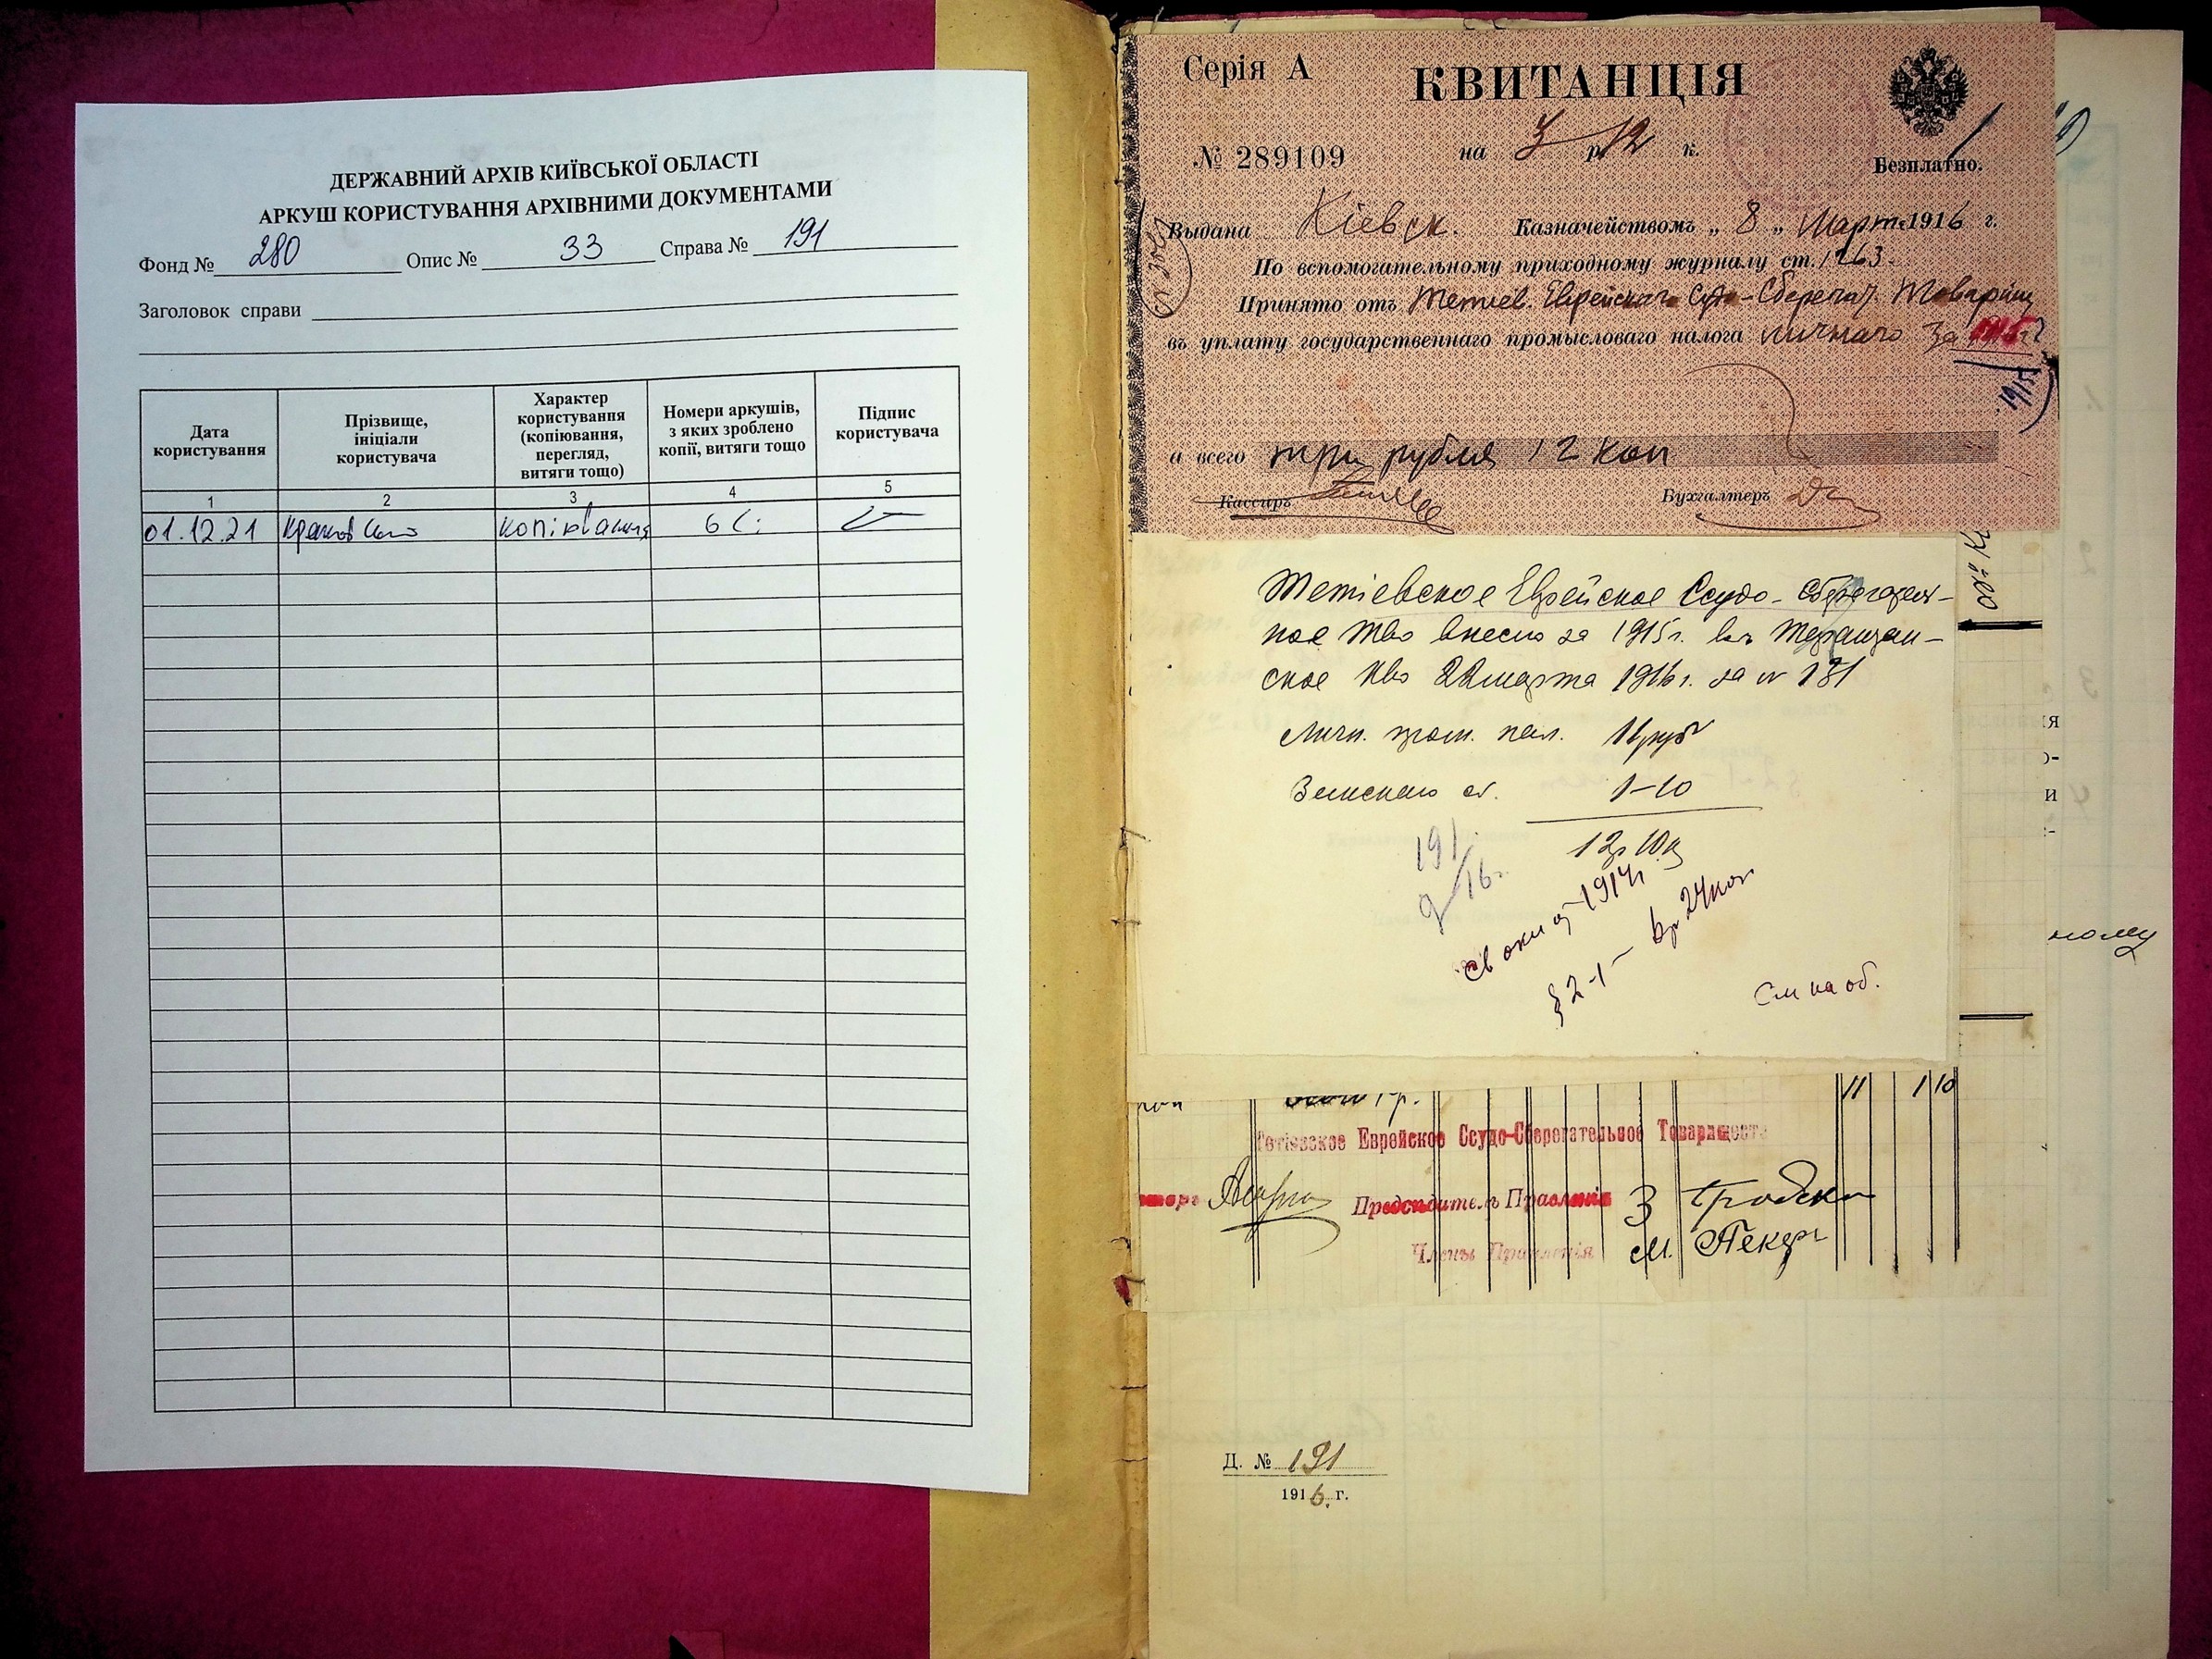 ДЕРЖАВНИЙ АРХІВ КИЇВСЬКОЇ ОБЛАСТІ
АРКУШ КОРИСТУВАННЯ АРХІВНИМИ ДОКУМЕНТАМИ
Фонд № 280 Опис № 33 Справа № 191
Заголовок справи
Дата користування
Прізвище, ініціали користувача
Характер користування (копіювання, перегляд, витяги тощо)
Номери аркушів, з яких зроблено копії, витяги тощо
Підпис користувача
1 2 3 4 5
01.12.21 копіювання 6
Серія А
КВИТАНЦІЯ
№ 289109 на 3 р. 12 к.
Безплатно.
Выдана Кіевск. Казначействомъ „ 8 „ Март 1916 г.
По вспомогательному приходному журналу ст. 1263
Принято отъ Тетіев. Еврейскаго Ссудо-Сберегат. Товарищ
въ уплату государственнаго промысловаго налога личнаго за
1915
а всего три рубля 12 коп
Кассиръ
Бухгалтеръ
Тетіевское Еврейское Ссудо-Сберегатель-
ное Тво внесло за 1915 г. въ Таращан-
ское Кво 22 марта 1916 г. за № 181
Личн. пром. нал. 11 руб
Земскаго сб. 1-10
12 р 10 к
191
16
1914 г
§ 2-1 - 6 р 24 коп
См на об.
11 1 10
Тетіевское Еврейское Ссудо-Сберегательное Товарищест
Предсѣдатель Правленія
Члены Правленія М. Пекер
ному
Д. № 191
1916 г.